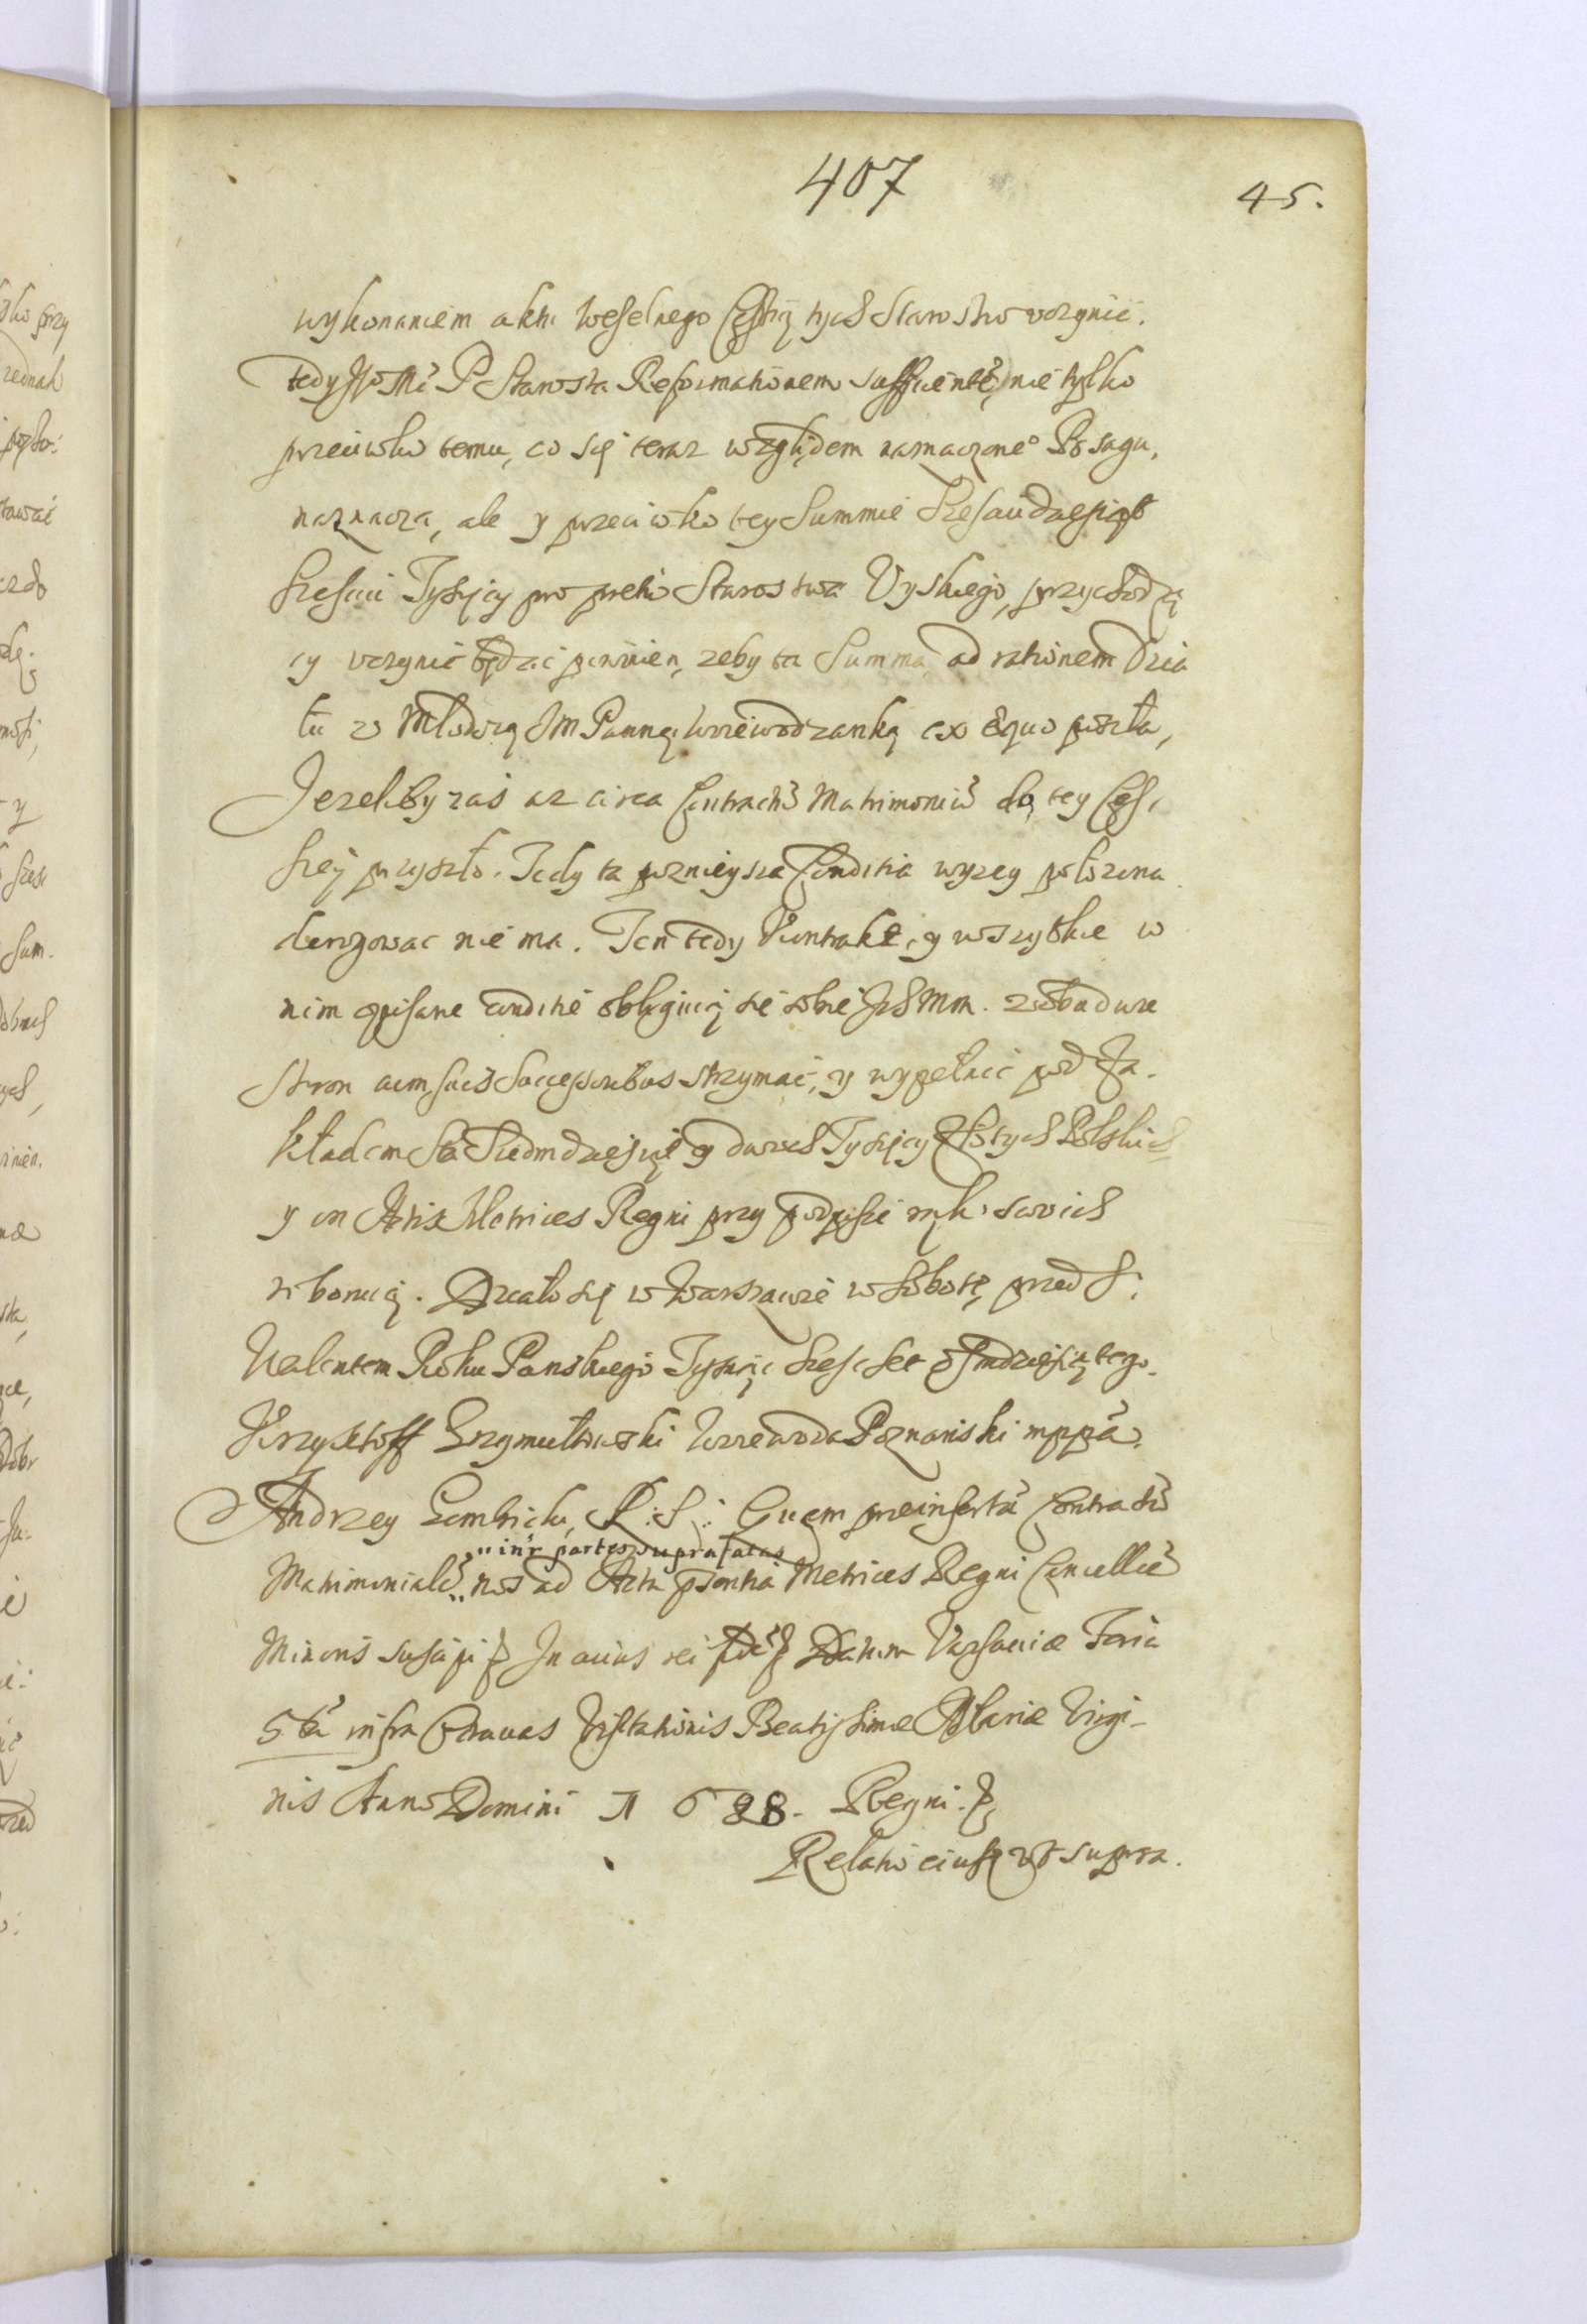 407
45.
wykonaniem aktu Weselnego Cessią tych Starostw uczynić.
tedy Jego Mć P Starosta Reformationem sufficientē, nie tylko
przeciwko temu, co się teraz względem naznaczone° Posagu,
naznacza, ale y przeciwko tey Summie Sześciudziesiąt
Sześciu Tysięcy pro pretio Starostwa Uyskiego, przychodzą
cy uczynić będzie powinien, zeby ta Summa ad rationem Dzia
łu z Młodszą JM Panną Woiewodzanką ex æquo poszła,
Jezeliby zaś az circa Contractū Matrimonii do tey Ces,
siey przyszło. Tedy ta poznieysza Conditia wyzey połozona
derogowac nie ma. Ten tedy Kontrakt, y wszytkie w
nim opisane conditie obliguią się sobie Ich Mm. z obudwu
stron cum suis Successoribus strzymać, y wypełnić pod Za-
kładem Sta Siedmdziesiąt y dwuch Tysięcy Złotych Polskich
y in Actis Metrices Regni przy podpisie rąk swoich
roboruią. Działo się w Warszawie w Sobotę przed S.
Valentem Roku Panskiego Tysiąc Sześcset osmdziesiątego.
Krzysztoff Grzymułtowski Woiewoda Poznański mppa.
Andrzey Gembicki, P: S: Quem preinsertū Contractū
"inr partes suprafatas
Matrimonialē" nos ad Acta psentia Metrices Regni Cancellariæ
Minoris suscepi p In cuius rei fidē p Datum Varsaviæ Feria
5tā infra Octavas Visitationis Beatissimæ Mariæ Virgi-
nis Anno Domini 1688. Regni. p
Relatio eiusq ut supra.